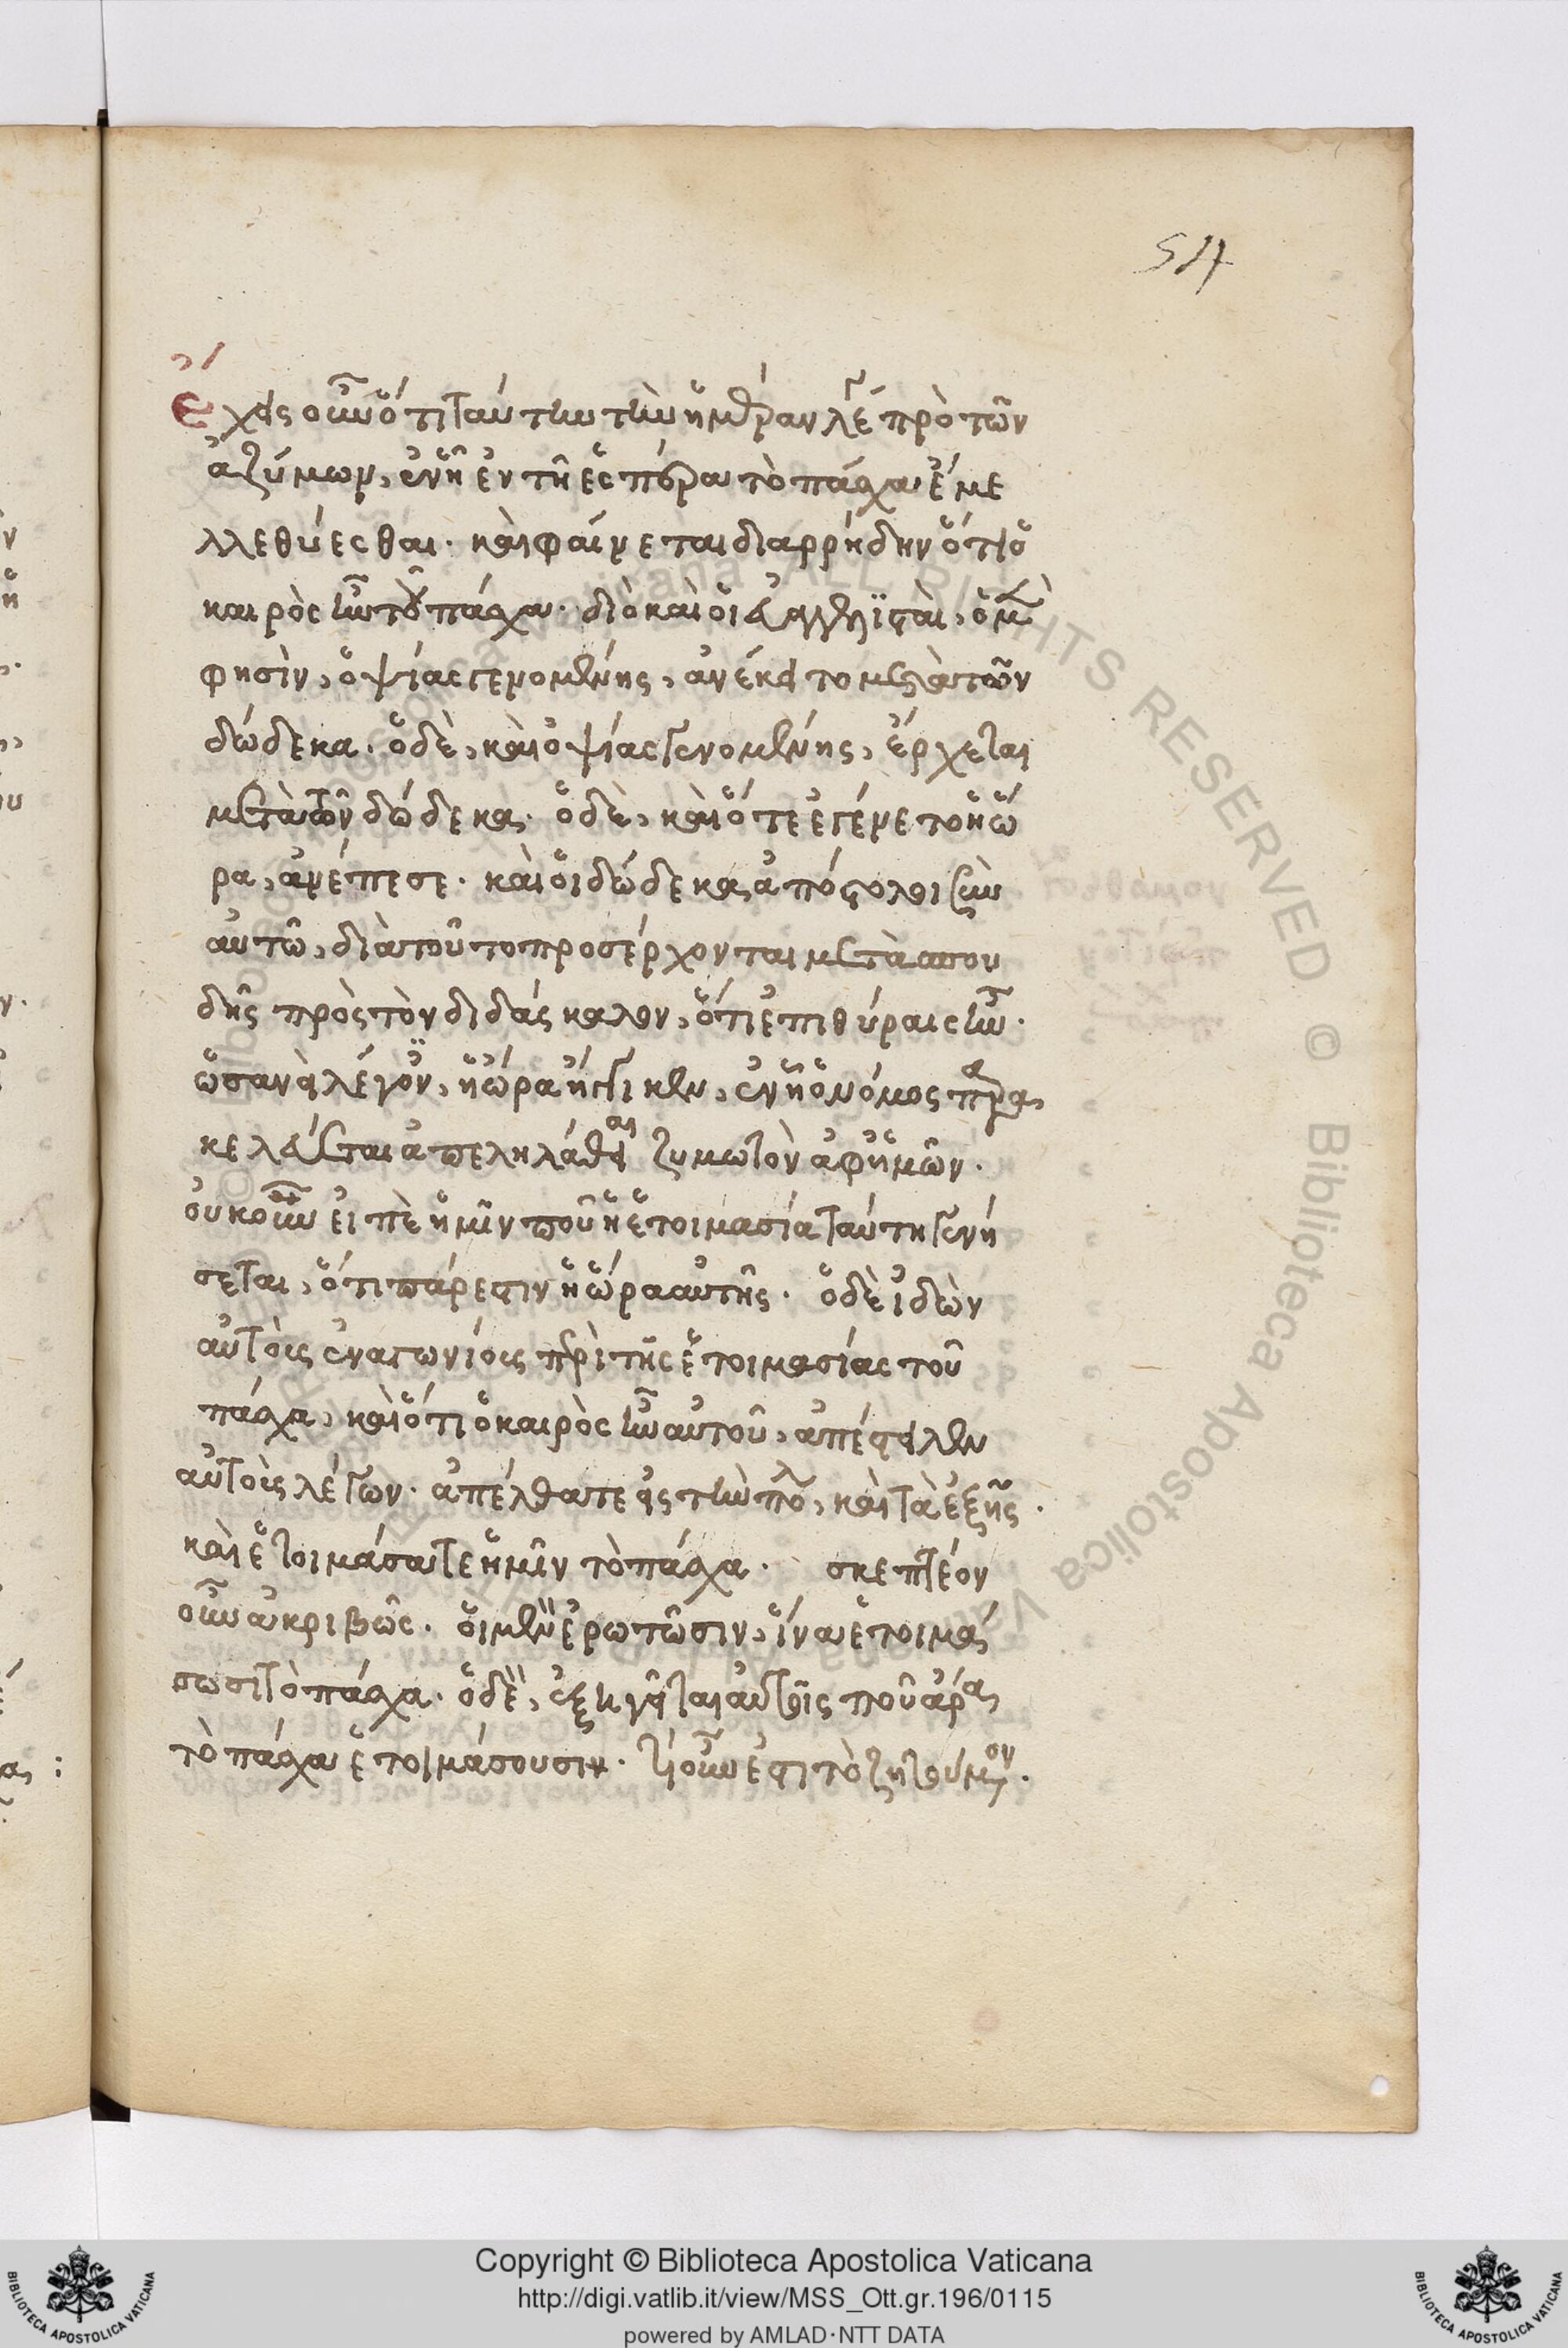 54
ἔχεις οὖν ὅτι ταύτην τὴν ἡμέραν λέγει πρὸ τῶν
ἀζύμων, ἐν ᾗ ἐν τῇ ἑσπέρα τὸ πάσχα ἔμε
λλε θύεσθαι. καὶ φαίνεται διαρρήδην ὅτι ὁ
καιρὸς ἦν τοῦ πάσχα. διὸ καὶ οἱ εὐαγγελϊσταὶ, ὁ μὲν
φησὶν, ὀψίας γενομένης, ἀνέκειτο μετὰ τῶν
δώδεκα. ὁ δὲ, καὶ ὀψίας γενομένης, ἔρχεται
μετὰ τῶν δώδεκα. ὁ δὲ, καὶ ὅτε ἐγένετο ἡ ὥ
ρα, ἀνέπεσε. καὶ οἱ δώδεκα ἀπόστολοι σὺν
αὐτῶ, διὰ τοῦτο προσέρχονται μετὰ σπου
δῆς πρὸς τὸν διδάσκαλον, ὅτι ἐπὶ θύραις ἦν.
ὡσανεὶ λέγον, ἡ ὥρα ἤγγικεν, ἐν ᾗ ὁ νόμος παρα
κελεύεται ἀπεληλάσθαι ζυμωτὸν ἀφ' ἡμῶν.
οὐκοῦν εἰπὲ ἡμῖν ποῦ ἡ ἑτοιμασία ταύτη γενή
σεται, ὅτι πάρεστιν ἡ ὥρα αὐτῆς. ὁ δὲ ἰδὼν
αὐτοὺς ἐναγωνίους περὶ τῆς ἑτοιμασίας τοῦ
πάσχα, καὶ ὅτι ὁ καιρὸς ἦν αὐτοῦ, ἀπέστειλεν
αὐτοὺς λέγων. ἀπέλθατε εἰς τὴν πόλ, καὶ τὰ ἐξῆς.
καὶ ἑτοιμάσατε ἡμῖν τὸ πάσχα. σκεπτέον
οὖν ἀκριβῶς. οἱ μὲν ἐρωτῶσιν, ἵνα ἑτοιμά
σωσι τὸ πάσχα. ὁ δὲ, ἐξηγεῖται αὐτοῖς ποῦ ἄρα
τὸ πάσχα ἑτοιμάσουσιν. τί οὖν ἐστι τὸ ζητούμενον.
Copyright © Biblioteca Apostolica Vaticana
http://digi.vatlib.it/view/MSS_Ott.gr.196/0115
powered by AMLAD·NTT DATA